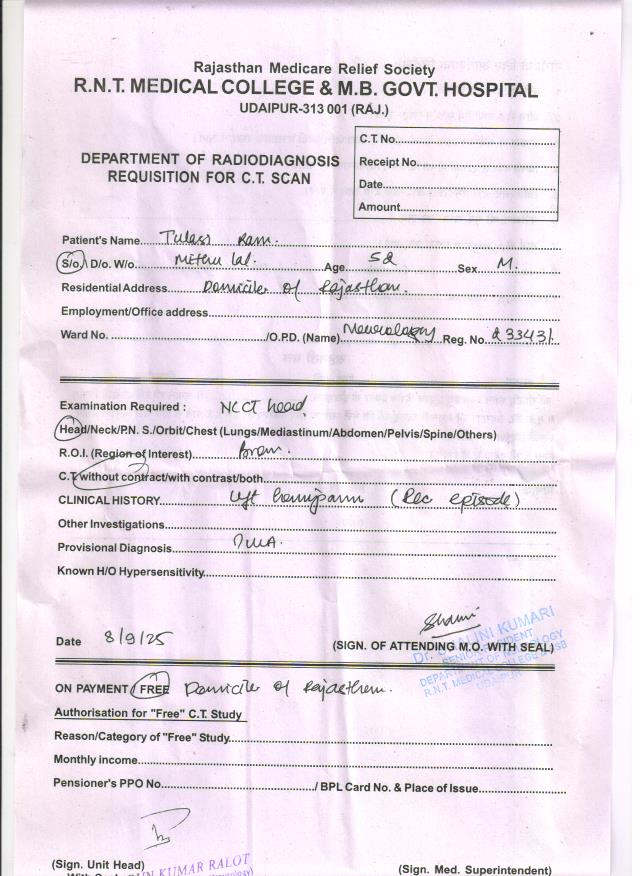 Rajasthan Medicare Relief Society
R.N.T. MEDICAL COLLEGE & M.B. GOVT. HOSPITAL
UDAIPUR-313 001 (RAJ.)
DEPARTMENT OF RADIODIAGNOSIS
REQUISITION FOR C.T. SCAN
C.T. No.
Receipt No.
Date
Amount
Patient's Name Tulasi Ram.
S/o. D/o. W/o Mithu lal. Age 52 Sex M.
Residential Address Domicile of Rajasthan.
Employment/Office address
Ward No. /O.P.D. (Name) Neurology Reg. No. 233431
Examination Required : NCCT head.
Head/Neck/P.N. S./Orbit/Chest (Lungs/Mediastinum/Abdomen/Pelvis/Spine/Others)
R.O.I. (Region of Interest) Brain.
C.T. without contract/with contrast/both
CLINICAL HISTORY left (Rec episode)
Other Investigations
Provisional Diagnosis
Known H/O Hypersensitivity
Date 8/9/25
(SIGN. OF ATTENDING M.O. WITH SEAL)
Dr. SHALINI KUMARI
SENIOR RESIDENT
DEPARTMENT OF NEUROLOGY
R.N.T. MEDICAL COLLEGE
UDAIPUR
ON PAYMENT / FREE Domicile of Rajasthan.
Authorisation for "Free" C.T. Study
Reason/Category of "Free" Study
Monthly income
Pensioner's PPO No. / BPL Card No. & Place of Issue
(Sign. Unit Head) (Sign. Med. Superintendent)
KUMAR RALOT